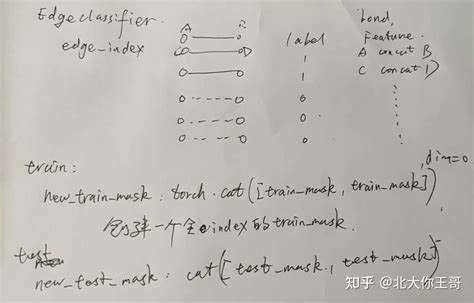 Edge classifier.
edge_index
A B label bond feature
0 0 1 A concat B
0 D 1 C concat D
0 0 1
0 0 0
0 0 0
0 0 0
train:
new_train_mask: torch.cat([train_mask, train_mask], dim=0
创建一个全edge index的train_mask.
test
new_test_mask: cat[test_mask, test_mask]
知乎 @北大你王哥